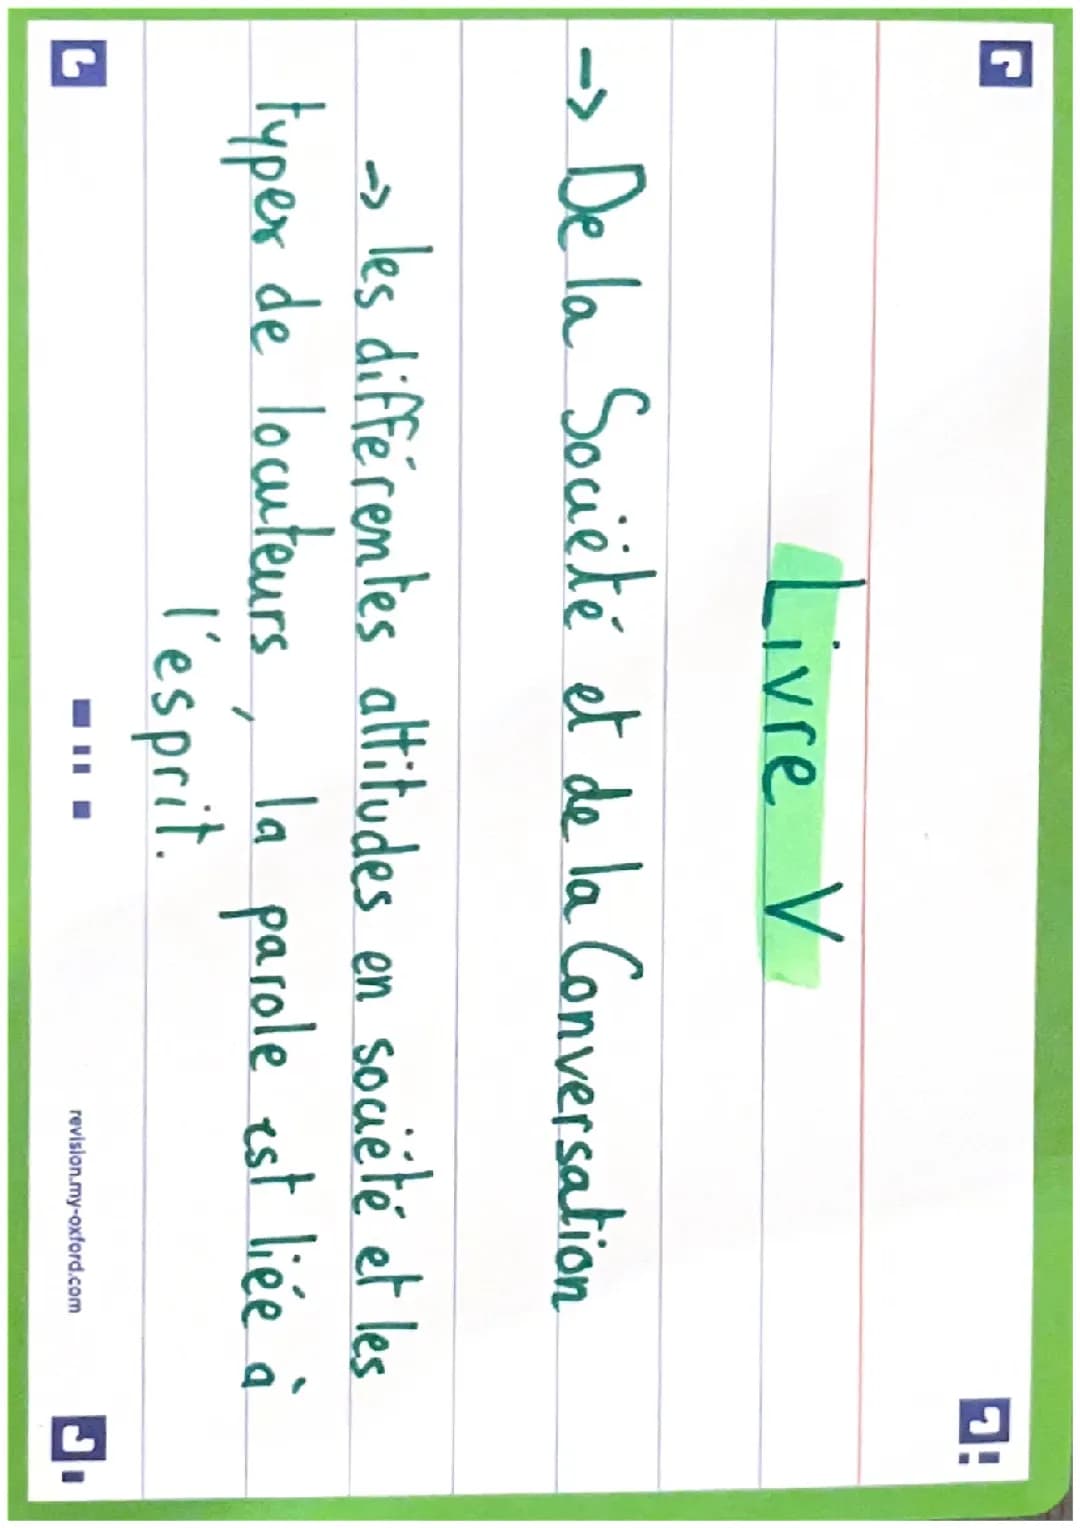 Livre V
-> De la Société et de la Conversation
-> les différentes attitudes en société et les
types de locuteurs, la parole est liée à
l'esprit.
revision.my-oxford.com